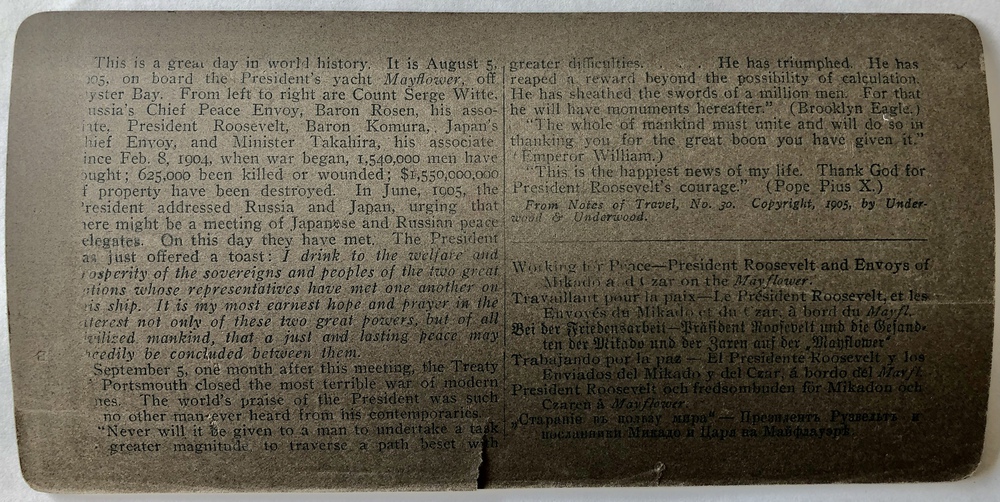 This is a great day in world history. It is August 5,
905, on board the President's yacht Mayflower, off
yster Bay. From left to right are Count Serge Witte,
ussia's Chief Peace Envoy, Baron Rosen, his asso-
iate, President Roosevelt, Baron Komura, Japan's
hief Envoy, and Minister Takahira, his associate
ince Feb. 8, 1904, when war began, 1,540,000 men have
ought; 625,000 been killed or wounded; $1,550,000,000
f property have been destroyed. In June, 1905, the
resident addressed Russia and Japan, urging that
here might be a meeting of Japanese and Russian peace
elegates. On this day they have met. The President
as just offered a toast: I drink to the welfare and
rosperity of the sovereigns and peoples of the two great
ations whose representatives have met one another on
is ship. It is my most earnest hope and prayer in the
terest not only of these two great powers, but of all
vilized mankind, that a just and lasting peace may
eedily be concluded between them.
September 5, one month after this meeting, the Treaty
Portsmouth closed the most terrible war of modern
mes. The world's praise of the President was such
no other man ever heard from his contemporaries.
"Never will it be given to a man to undertake a task
greater magnitude, to traverse a path beset with
greater difficulties. . . . . He has triumphed. He has
reaped a reward beyond the possibility of calculation.
He has sheathed the swords of a million men. For that
he will have monuments hereafter." (Brooklyn Eagle.)
"The whole of mankind must unite and will do so in
thanking you for the great boon you have given it."
(Emperor William.)
"This is the happiest news of my life. Thank God for
President Roosevelt's courage." (Pope Pius X.)
From Notes of Travel, No. 30. Copyright, 1905, by Under-
wood & Underwood.
Working for Peace—President Roosevelt and Envoys of
Mikado and Czar on the Mayflower.
Travaillant pour la paix—Le Président Roosevelt, et les
Envoyés du Mikado et du Czar, à bord du Mayfl.
Bei der Friedensarbeit—Präsident Roosevelt und die Gesand-
ten der Mikado und der Zaren auf der „Mayflower"
Trabajando por la paz — El Presidente Roosevelt y los
Enviados del Mikado y del Czar, á bordo del Mayfl.
President Roosevelt och fredsombuden för Mikadon och
Czaren å Mayflower
„Стараніе въ пользу мира" — Президентъ Рузвельтъ и
посланники Микадо и Царя на Майфлауэръ.